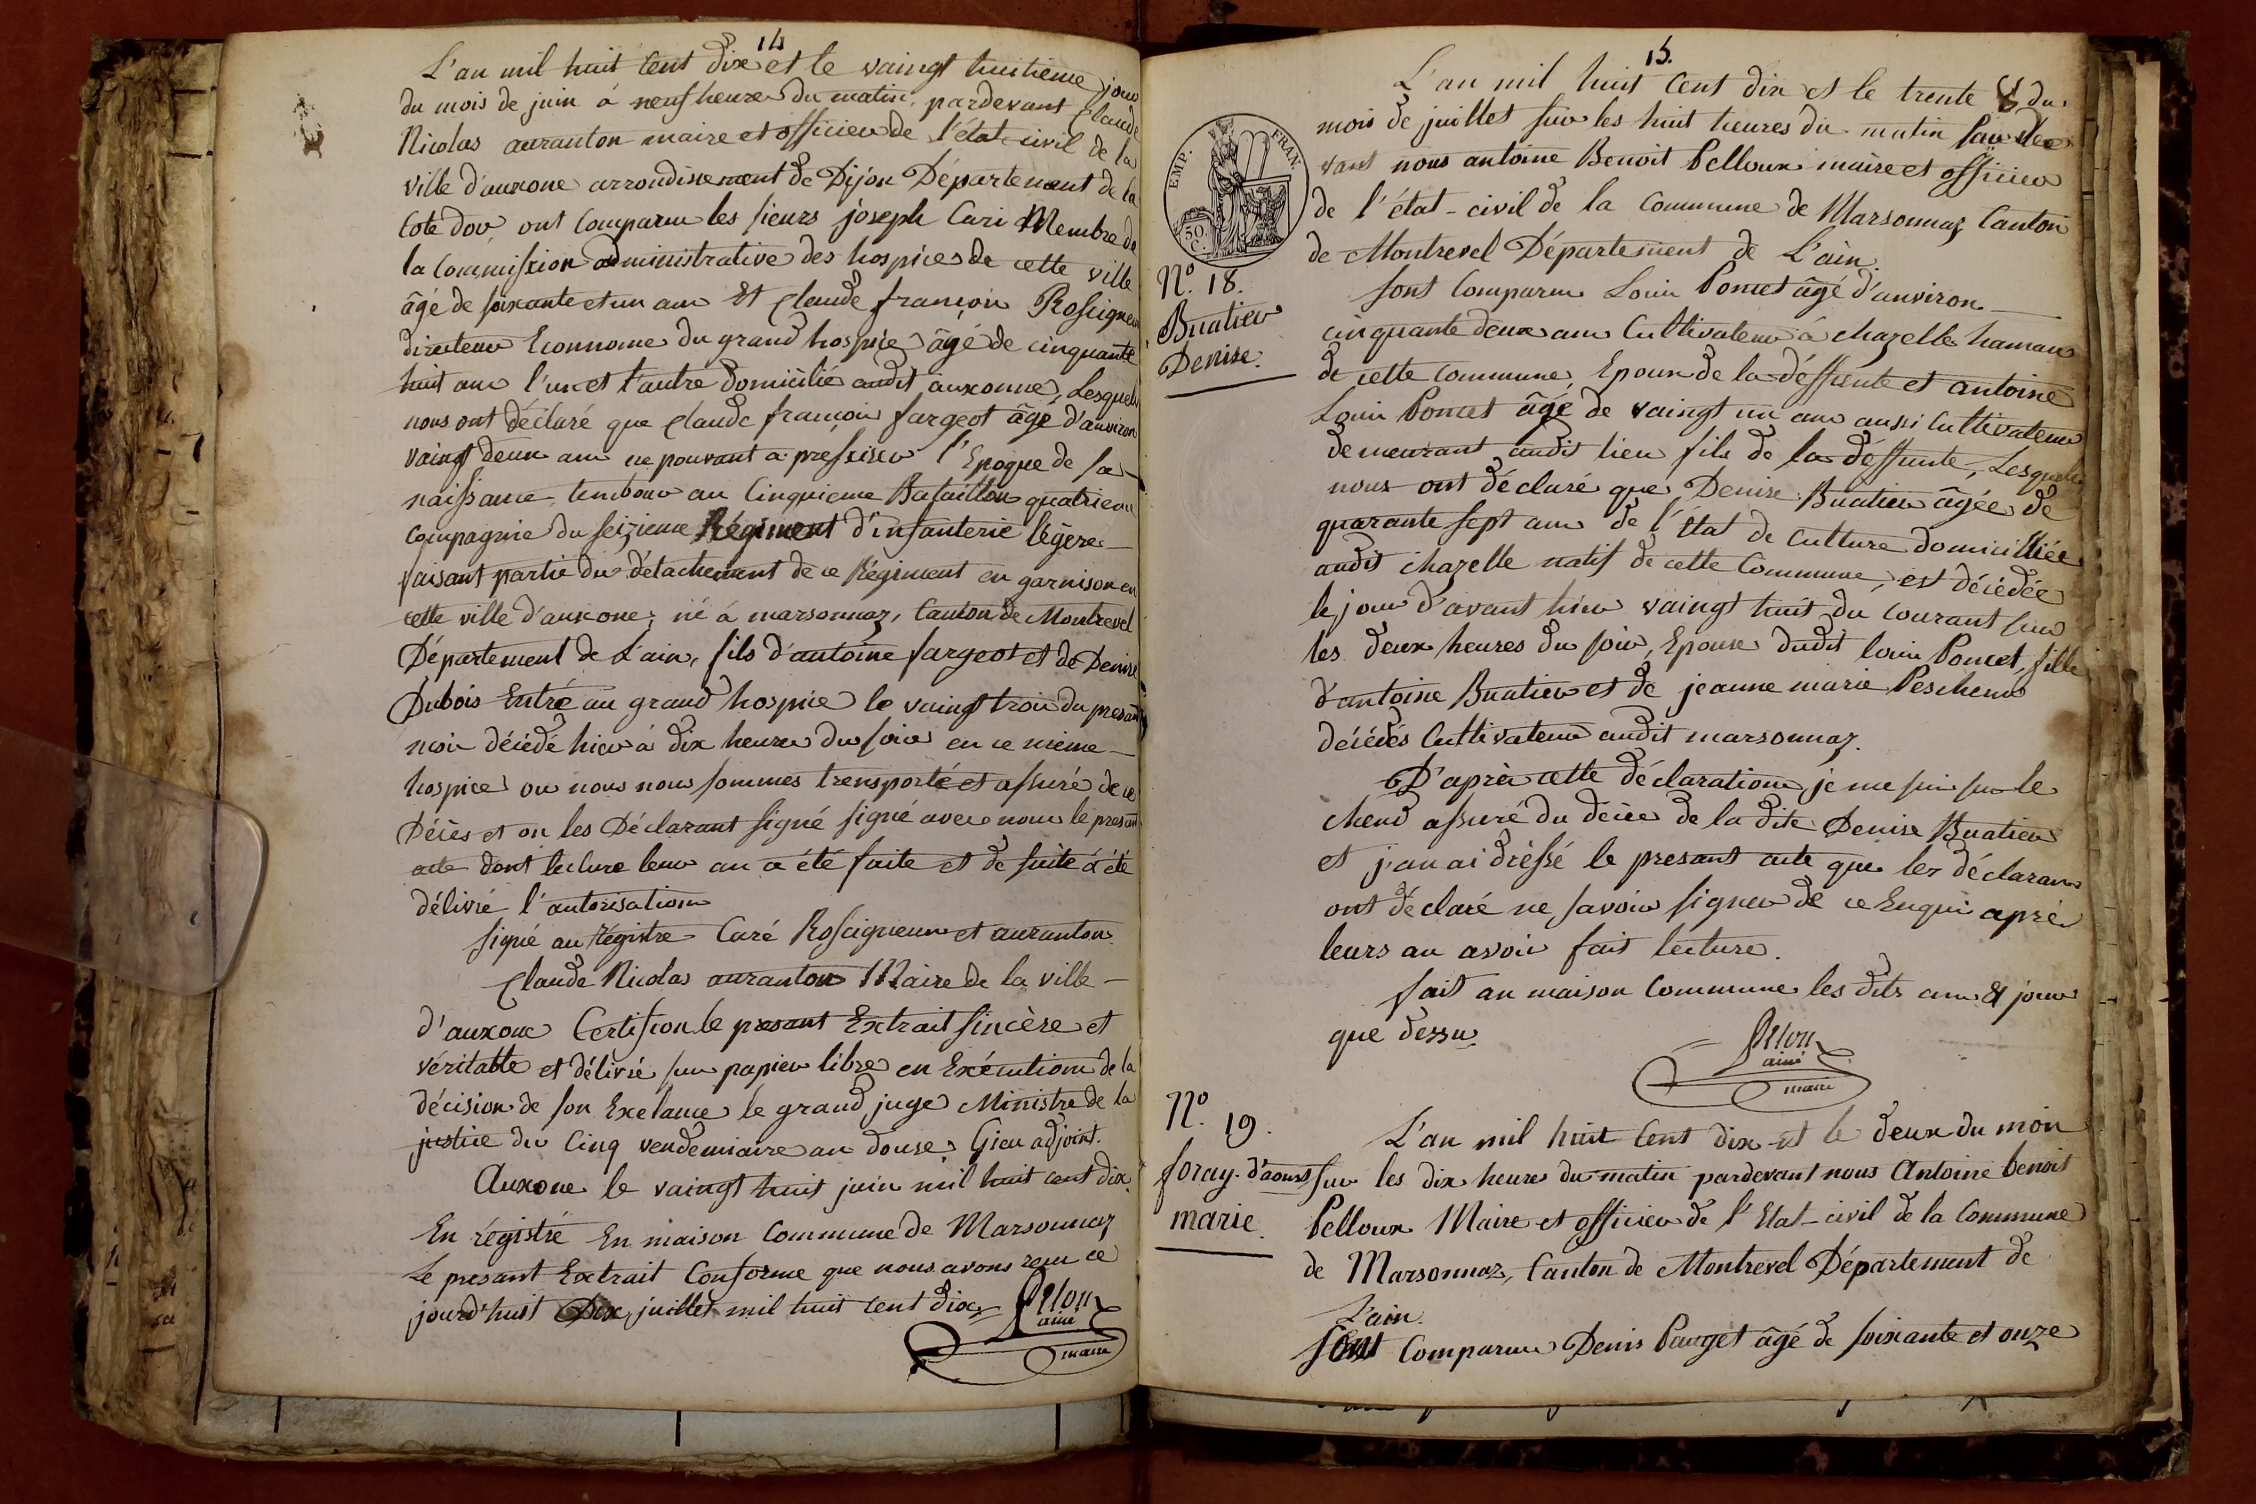 14
L'an mil huit cent dix et le vaingt huitieme jour
du mois de juin à neuf heures du matin, pardevant Claude
Nicolas auranton maire et officier de l'état civil de la
ville d'auxone arrondissement de Dijon Département de la
Cote dor ont comparu les sieurs joseph Cari Membre de
la Commission administrative des hospices de cette ville
âgé de soixante et un ans Et Claude françois Rossigneux
directeur Econnome du grand hospice âgé de cinquante
huit ans l'un et l'autre domicilié audit auxonne, Lesquels
nous ont déclaré que Claude françois fargeot âgé d'anviron
vaingt deux ans ne pouvant a préssiser l'Epoque de sa
naissance tembour au Cinquieme Bataillon quatrieme
Compagnie du seizieme Régiment d'infanterie légère
faisant partie du détachement de ce Régiment en garnison en
cette ville d'auxone; né á marsonnaz, Canton de Montrevel
Département de L'ain, fils d'antoine fargeot et de Denise
Dubois Entré au grand hospice le vaingt trois du presant
mois décédé hier à dix heures du soir en ce même
hospice ou nous nous sommes transporté et assuré de ce
Décès et on les Déclarant signé signé avec nous le presant
acte dont lecture leur an a été faite et de suite à été
délivré l'autorisation
signé au régistre Caré Rossigneux et auranton
Claude Nicolas auranton Maire de la ville
d'auxone Certifion le presant Extrait sincère et
véritable et délivré sur papier libre en Exécution de la
décision de son Exelance le grand juge Ministre de la
justice du Cinq vendemiaire an douse, Gieu adjoint.
Auxone le vaingt huit juin mil huit cent dix.
En régistré En maison Commune de Marsonnaz
Le presant Extrait Conforme que nous avons reçu ce
jourd'huit Dix juillet mil huit cent dix
ainé
maire
15.
L'an mil huit cent dix et le trente du
mois de juillet sur les huit heures du matin Par de
vant nous antoine Benoit Pelloux maire et officier
de l'état-civil de la Commune de Marsonnaz Canton
de Montrevel Département de L'ain.
EMP. FRAN.
50 C.
N.º 18.
Buatier
Denise.
sont Comparu Louis Poncet âgé d'anviron
cinquante deux ans Cultivateur à chazelle hamau
de cette commune, Epoux de la déffunte et antoine
Louis Poncet âgé de vaingt un ans aussi Cultivateur
demeurant audit lieu fils de la déffunte, Lesquels
nous ont déclaré que Denise Buatier âgée de
quarante sept ans de l'état de Culture domicilliée
audit chazelle natif de cette Commune, est décédée
le jour d'avant hier vaingt huit du courant sur
les deux heures du soir, Epouse dudit louis Poncet, fille
d'antoine Buatier et de jeanne marie Pescheur
décédés Cultivateur audit marsonnaz.
D'après cette déclaration, je me suis sur le
cheud assuré du décès de la dite Denise Buatier
et j'an ai dréssé le presant acte que les déclarans
ont déclaré ne savoir signer de ce Enquis après
leurs an avoir fait lecture.
fait an maison Commune les dits ans & jour
que dessu
ainé
maire
N.º 19.
foray
marie
L'an mil huit Cent dix et le deux du mois
d'aoust sur les dix heure du matin pardevant nous Antoine benoit
Pelloux Maire et officier de l'Etat-civil de la Commune
de Marsonnaz, Canton de Montrevel Département de
L'ain.
Sont Comparu Denis Pauget âgé de soixante et onze